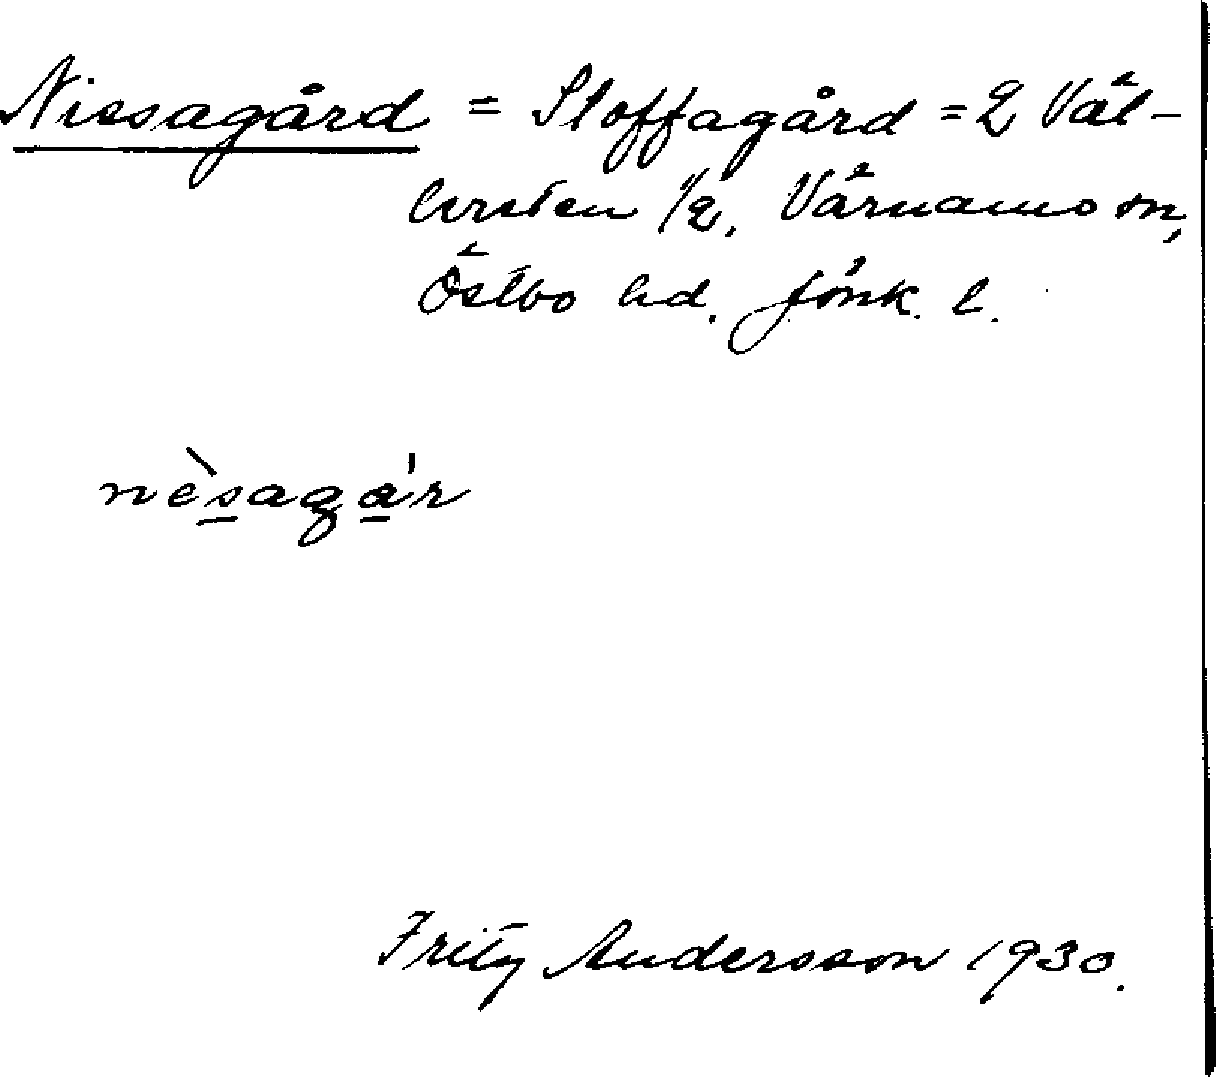 Nissagård = Stoffagård = 2 Väl-
lersten 1/2, Värnamo sn,
Östbo hd. Jönk. l.
nèsagár
Fritz Andersson 1930.